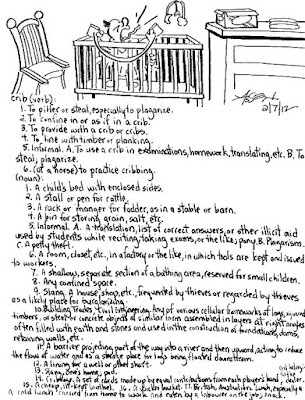 2/7/12
crib (verb):
1. To pilfer or steal, especially to plagarize.
2. To confine in or as if in a crib.
3. To provide with a crib or cribs.
4. To line with timber or planking.
5. Informal. A. To use a crib in examinations, homework, translating, etc. B. To
steal; plagarize.
6. (of a horse) to practice cribbing.
(noun):
1. A child's bed with enclosed sides.
2. A stall or pen for cattle.
3. A rack or manger for fodder, as in a stable or barn.
4. A bin for storing grain, salt, etc.
5. Informal. A. A translation, list of correct answers, or other illicit aid
used by students while reciting, taking exams, or the like; pony. B. Plagarism.
C. A petty theft.
6. A room, closet, etc., in a factory or the like, in which tools are kept and issued
to workers.
7. A shallow, separate section of a bathing area, reserved for small children.
8. Any confined space.
9. Slang. A house, shop, etc., frequented by thieves or regarded by thieves
as a likely place for burglarizing.
10. Building Trades, Civil Engineering. Any of various cellular frameworks of logs, squared
timbers, or steel or concrete objects of similar form assembled in layers at right angles
often filled with earth and stones and used in the construction of foundations, dams,
retaining walls, etc.
11. A barrier projecting part of the way into a river and then upward, acting to reduce
the flow of water and as a storage place for logs being floated downstream.
12. A lining for a well or other shaft.
13. Slang. One's home; pad.
14. Cribbage. A set of cards made up by equal contributions from each player's hand,
15. A cheap, ill-kept brothel. 16. A wicker basket. 17. British, Australian. Lunch, especially a
cold lunch carried from home to work and eaten by a labourer on the job; snack.